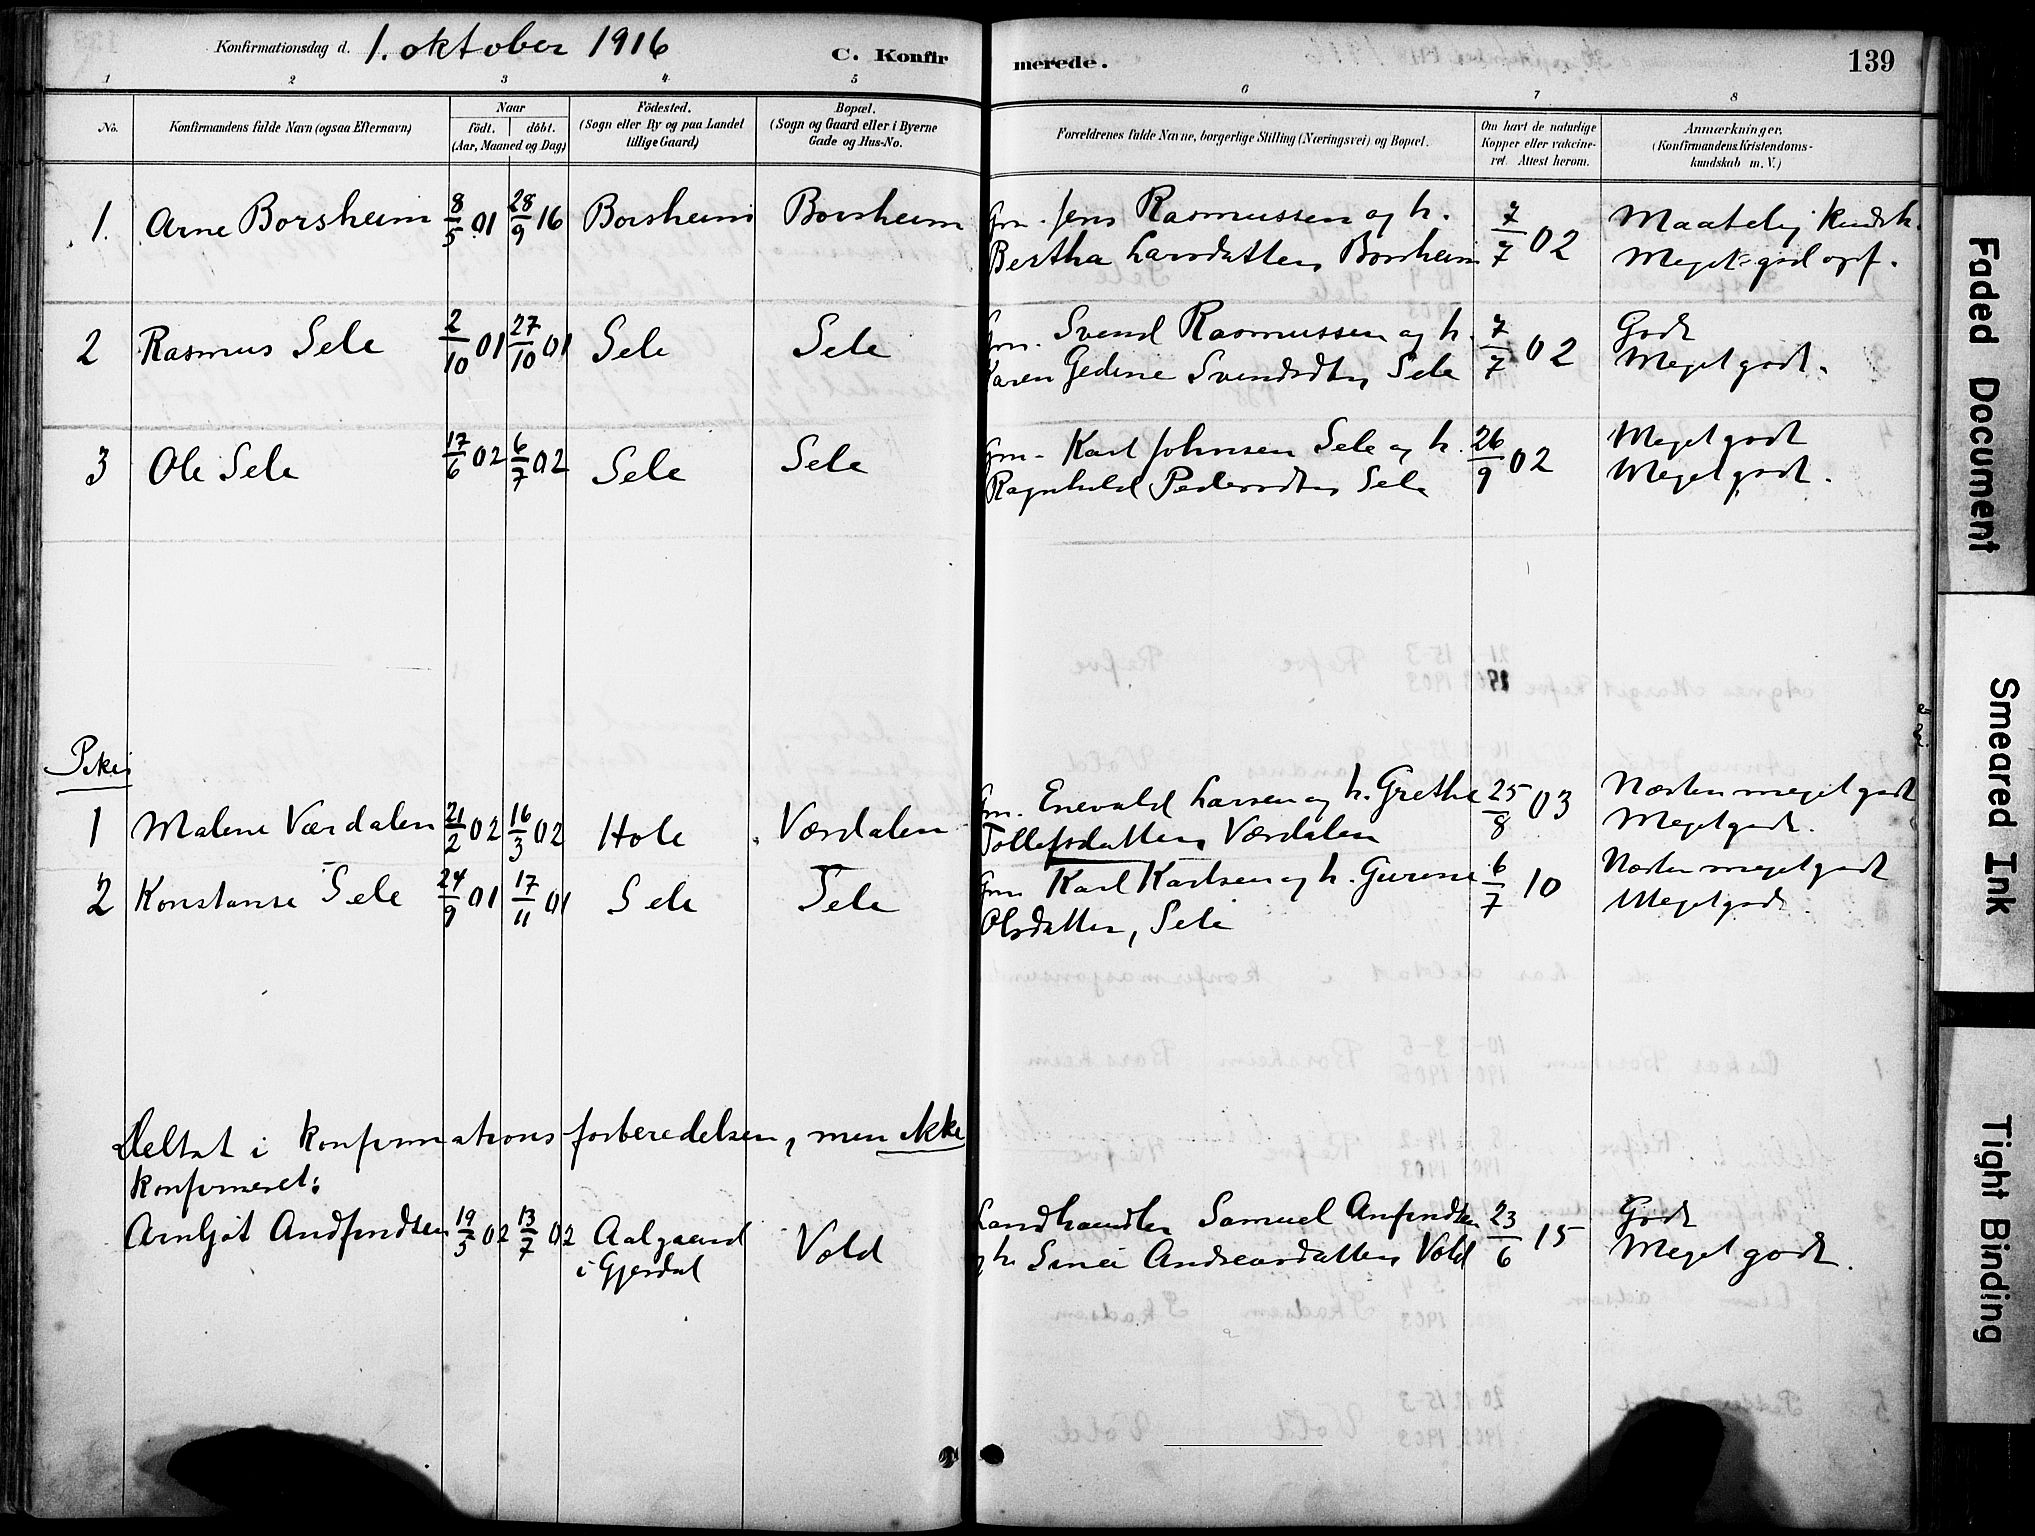 Konfirmationsdag d. 1. oktober 1916
C. Konfir merede.
139
1 2 3 4 5 6 7 8
No.
Konfirmandens fulde Navn (ogsaa Efternavn)
Naar
födt. döbt.
(Aar, Maaned og Dag)
Födested.
(Sogn eller By og paa Landet
tillige Gaard)
Bopæl.
(Sogn og Gaard eller i Byerne
Gade og Hus-No.
Forældrenes fulde Navne, borgerlige Stilling (Næringsvei) og Bopæl.
Om havt de naturlige
Kopper eller vakcine-
ret. Attest herom.
Anmærkninger.
(Konfirmandens Kristendoms-
kundskab m. V.)
1. Arne Borsheim 8/5 01 28/9 16 Borsheim Borsheim Gm. Jens Rasmussen og h. 7/7 02 Maatelig kundsk.
Bertha Larsdatter Borsheim Meget god opf.
2 Rasmus Sele 2/10 01 27/10 01 Sele Sele Gm. Svend Rasmussen og h. 7/7 02 Godt
Karen Gedine Svendsdtr Sele Meget godt.
3 Ole Sele 17/6 02 6/7 02 Sele Sele Gm. Karl Johnsen Sele og h. 26/9 02 Meget godt
Ragnhild Pedersdtr Sele Meget godt.
Piker
1 Malene Værdalen 21/2 02 16/3 02 Hole Værdalen Gm. Enevald Larsen og h. Grethe 25/8 03 Næsten meget godt
Tollefsdatter Værdalen Meget godt.
2 Konstanse Sele 24/9 01 17/11 01 Sele Sele Gm. Karl Karlsen og h. Gurine 6/7 10 Næsten meget godt
Olsdatter, Sele Meget godt.
Deltat i konfirmationsforberedelsen, men ikke
konfirmeret:
Arnljot Andfindsen 19/5 02 13/7 02 Aalgaard
i Gjesdal Vold Landhandler Samuel Anfindsen 23/6 15 Godt
og h. Andreasdatter Vold Meget godt.
Faded Document
Smeared Ink
Tight Binding